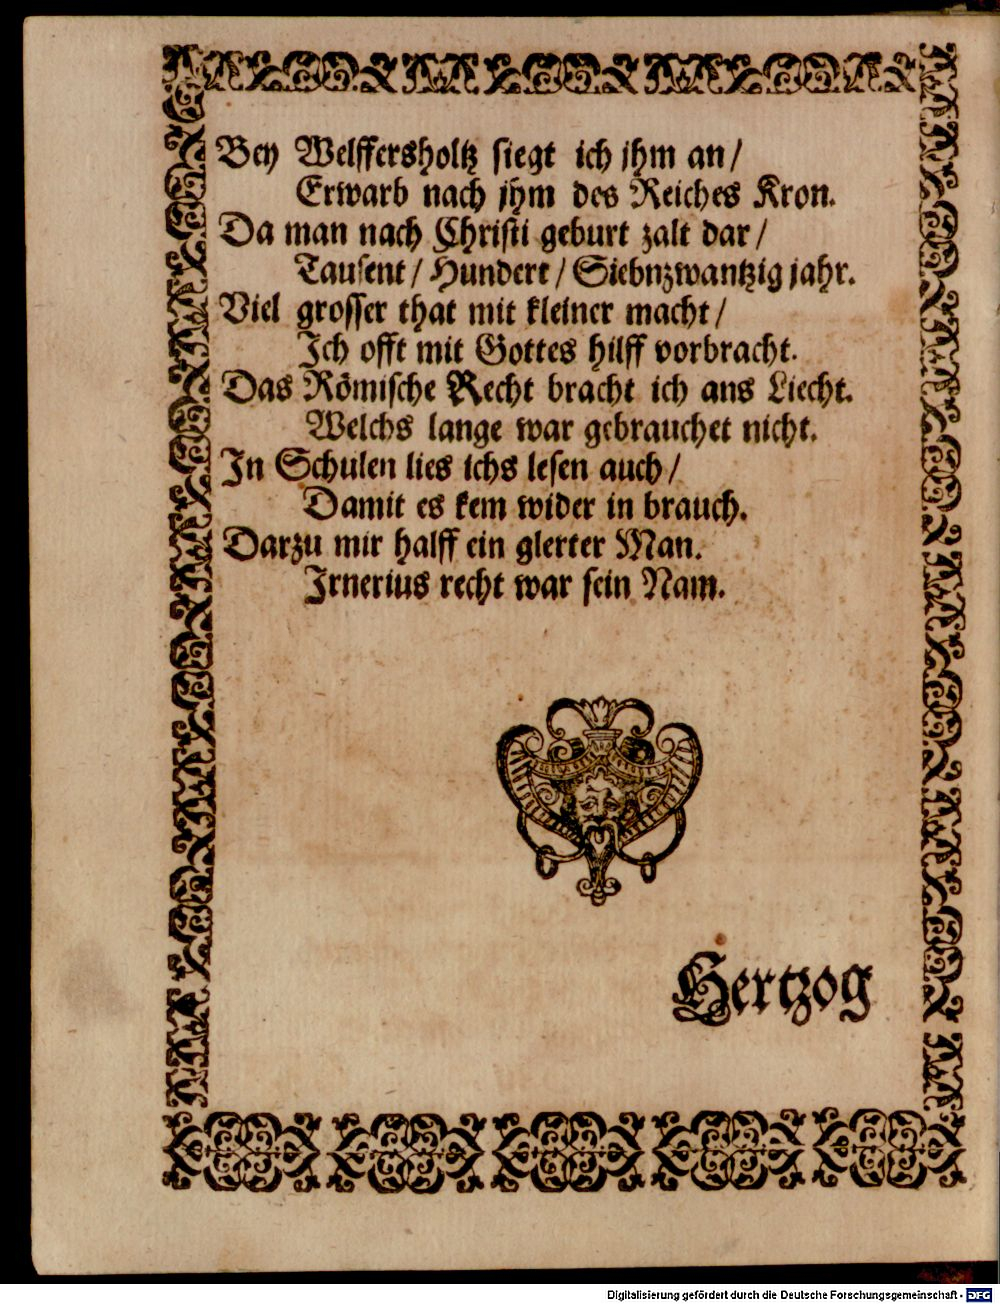 Bey Welffersholtz siegt ich jhm an /
Erwarb nach jhm des Reiches Kron.
Da man nach Christi geburt zalt dar /
Tausent / Hundert / Siebnzwantzig jahr.
Viel grosser that mit kleiner macht /
Ich offt mit Gottes hilff vorbracht.
Das Römische Recht bracht ich ans Liecht.
Welchs lange war gebrauchet nicht.
In Schulen lies ichs lesen auch /
Damit es kem wider in brauch.
Darzu mir halff ein glerter Man.
Irnerius recht war sein Nam.
Hertzog
Digitalisierung gefördert durch die Deutsche Forschungsgemeinschaft - DFG